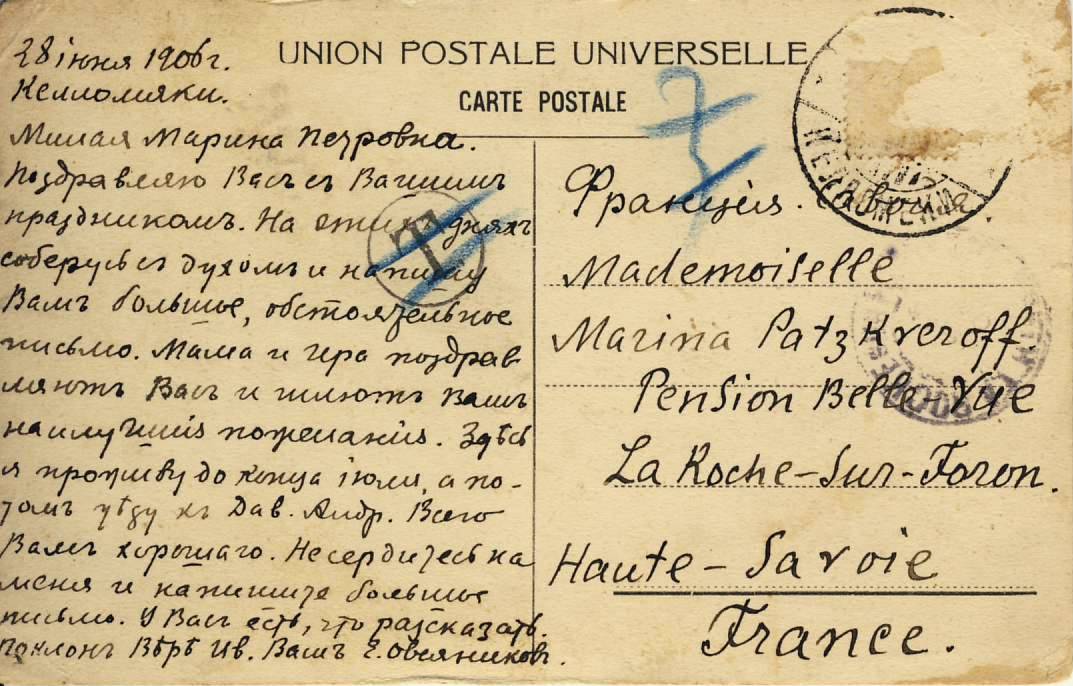 28 іюня 1906 г.
Келломяки.
UNION POSTALE UNIVERSELLE
CARTE POSTALE
Милая Марина Петровна.
Поздравляю Васъ съ Вашимъ
праздникомъ. На этихъ дняхъ
соберусь съ духомъ и напишу
Вамъ большое, обстоятельное
письмо. Мама и Ира поздрав
ляютъ Васъ и шлютъ Вамъ
наилучшія пожеланія. Здѣсь
я проживу до конца іюля, а по-
томъ уѣду къ Дав. Андр. Всего
Вамъ хорошаго. Не сердитесь на
меня и напишите большое
письмо. У Васъ есть, что разсказать.
Поклонъ Вѣрѣ Ив. Вашъ Е. Овсянниковъ.
T
Франція. Савойя.
Mademoiselle
Marina Patzkveroff.
Pension Belle-Vue
La Roche-sur-Foron.
Haute-Savoie
France.